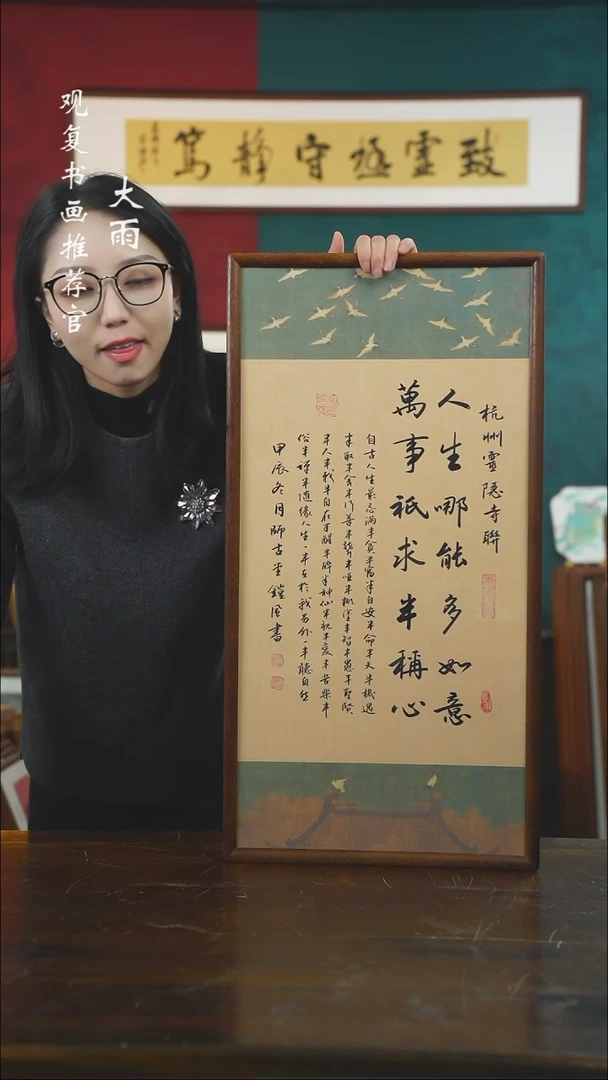 观复书画推荐官
大雨
致虛極守靜篤
杭州靈隱寺聯
人生哪能多如意
萬事祇求半稱心
自古人生最忌滿半貧半富半自安半命半天半機遇
半取半舍半行善半聾半啞半糊塗半智半愚半聖賢
半人半我半自在半醒半醉半神仙半親半愛半苦樂半
俗半禪半隨緣人生一半在於我另外一半聽自然
甲辰冬月師古堂書